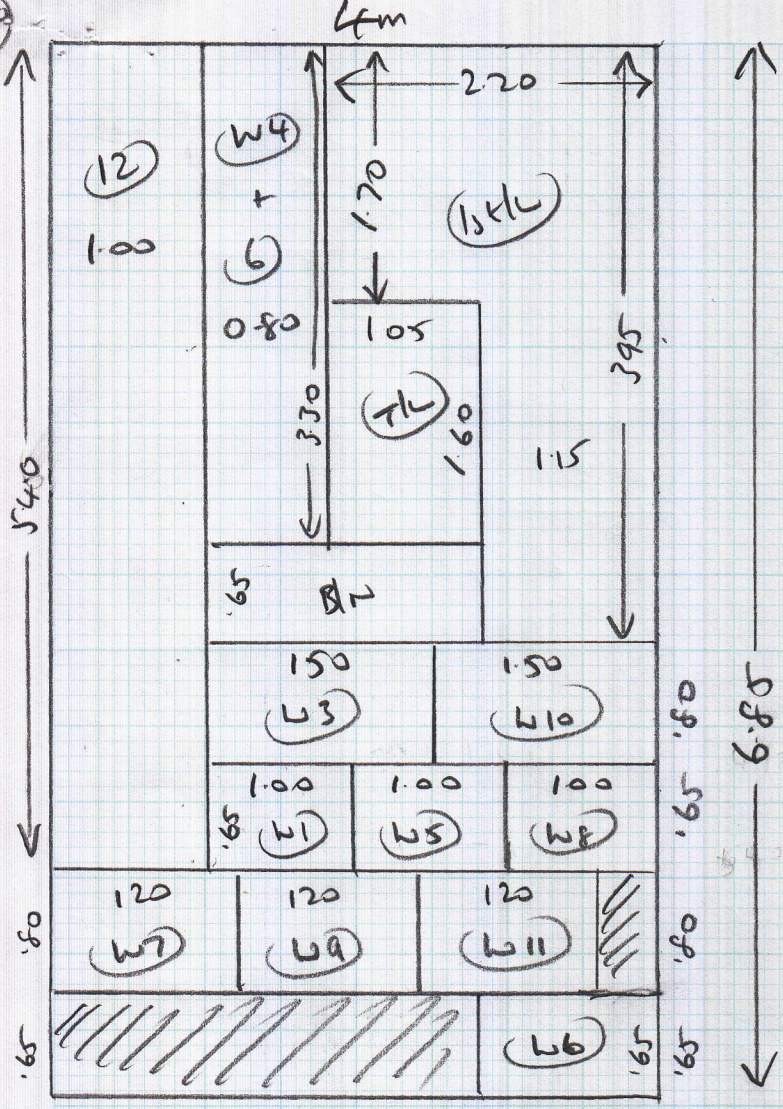 4m
2.20
12
1.00
W4
+
6
0.80
1.70
1st/L
3.30
1.05
T/L
1.60
3.95
1.15
5.40
6.85
.65
B/N
1.50
W3
1.50
W10
.80
1.00
.65
W1
1.00
W5
1.00
W8
.65
.80
120
W7
120
W9
120
W11
.80
.65
W6
.65
.65